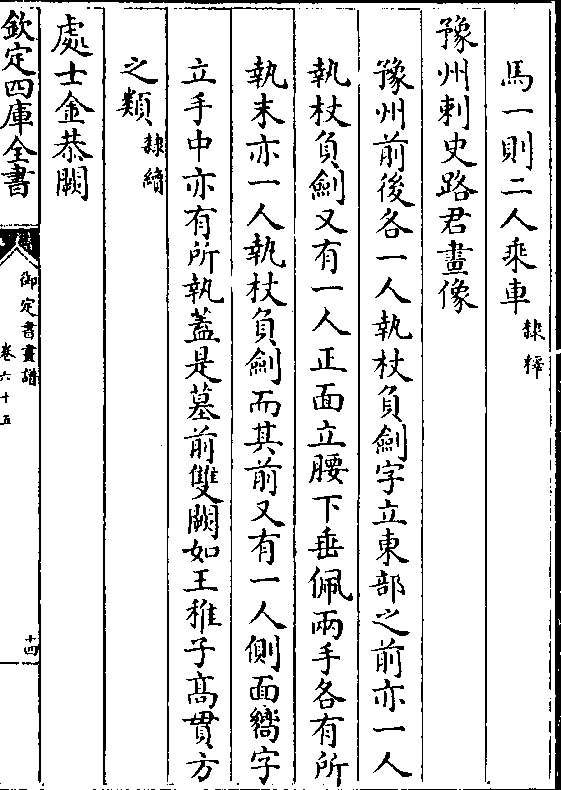 馬一則二人乘車隸釋
豫州刺史路君畫像
豫州前後各一人執杖負劍字立東部之前亦一人
執杖負劍又有一人正面立腰下垂佩兩手各有所
執末亦一人執杖負劍而其前又有一人側面嚮字
立手中亦有所執蓋是墓前雙闕如王稚子高貫方
之類隸續
處士金恭闕
欽定四庫全書
御定書畫譜
卷六十五
十四